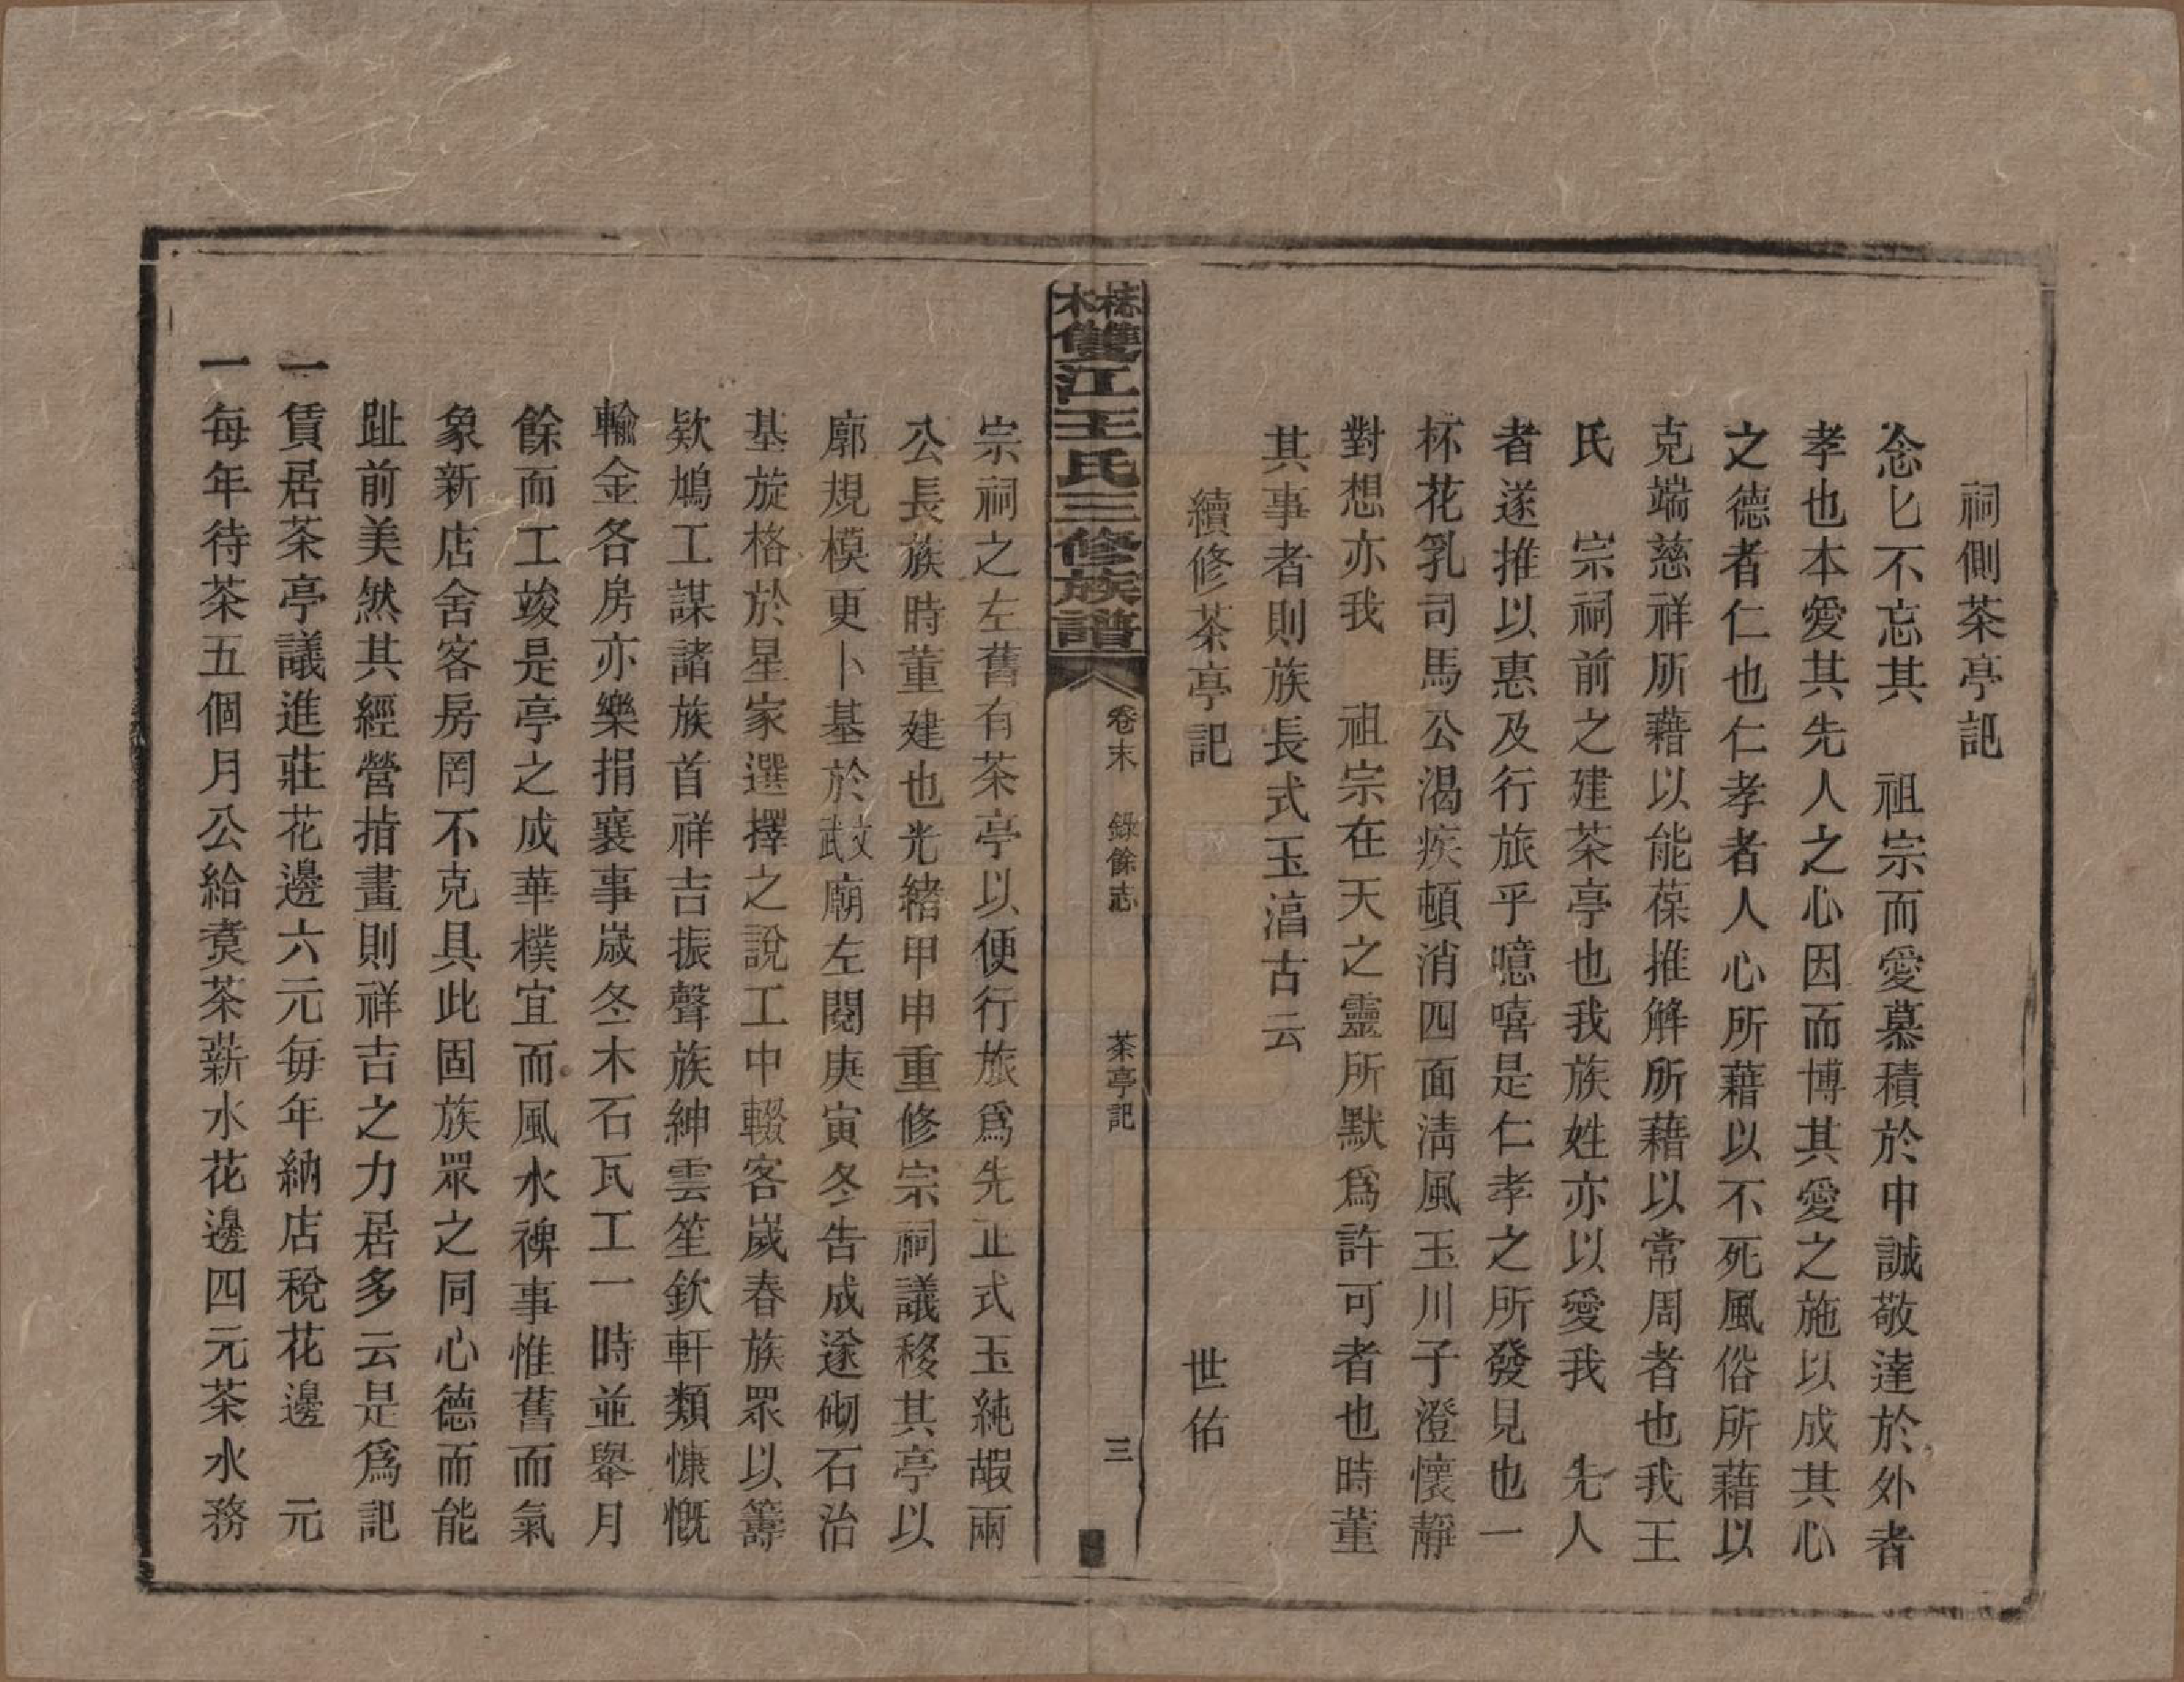 祠側茶亭記
念匕不忘其　祖宗而愛慕積於中誠敬達於外者
孝也本愛其先人之心因而博其愛之施以成其心
之德者仁也仁孝者人心所藉以不死風俗所藉以
克端慈祥所藉以能葆推解所藉以常周者也我王
氏　宗祠前之建茶亭也我族姓亦以愛我　先人
者遂推以惠及行旅乎噫嘻是仁孝之所發見也一
杯花乳司馬公渴疾頓消四面淸風玉川子澄懷靜
對想亦我　祖宗在天之靈所默爲許可者也時董
其事者則族長式玉㵑古云
續修茶亭記　世佑
株木雙江王氏三修族譜
卷末　錄餘志　茶亭記　三
宗祠之左舊有茶亭以便行旅爲先正式玉純嘏兩
公長族時董建也光緒甲申重修宗祠議移其亭以
廓規模更卜基於文武廟左閱庚寅冬告成遂砌石治
基旋格於星家選擇之說工中輟客歲春族眾以籌
欵鳩工謀諸族首祥吉振聲族紳雲笙欽軒類慷慨
輸金各房亦樂捐襄事歲冬木石瓦工一時並舉月
餘而工竣是亭之成華樸宜而風水裨事惟舊而氣
象新店舍客房罔不克具此固族眾之同心德而能
趾前美然其經營指畫則祥吉之力居多云是爲記
一賃居茶亭議進莊花邊六元每年納店稅花邊　元
一每年待茶五個月公給煑茶薪水花邊四元茶水務